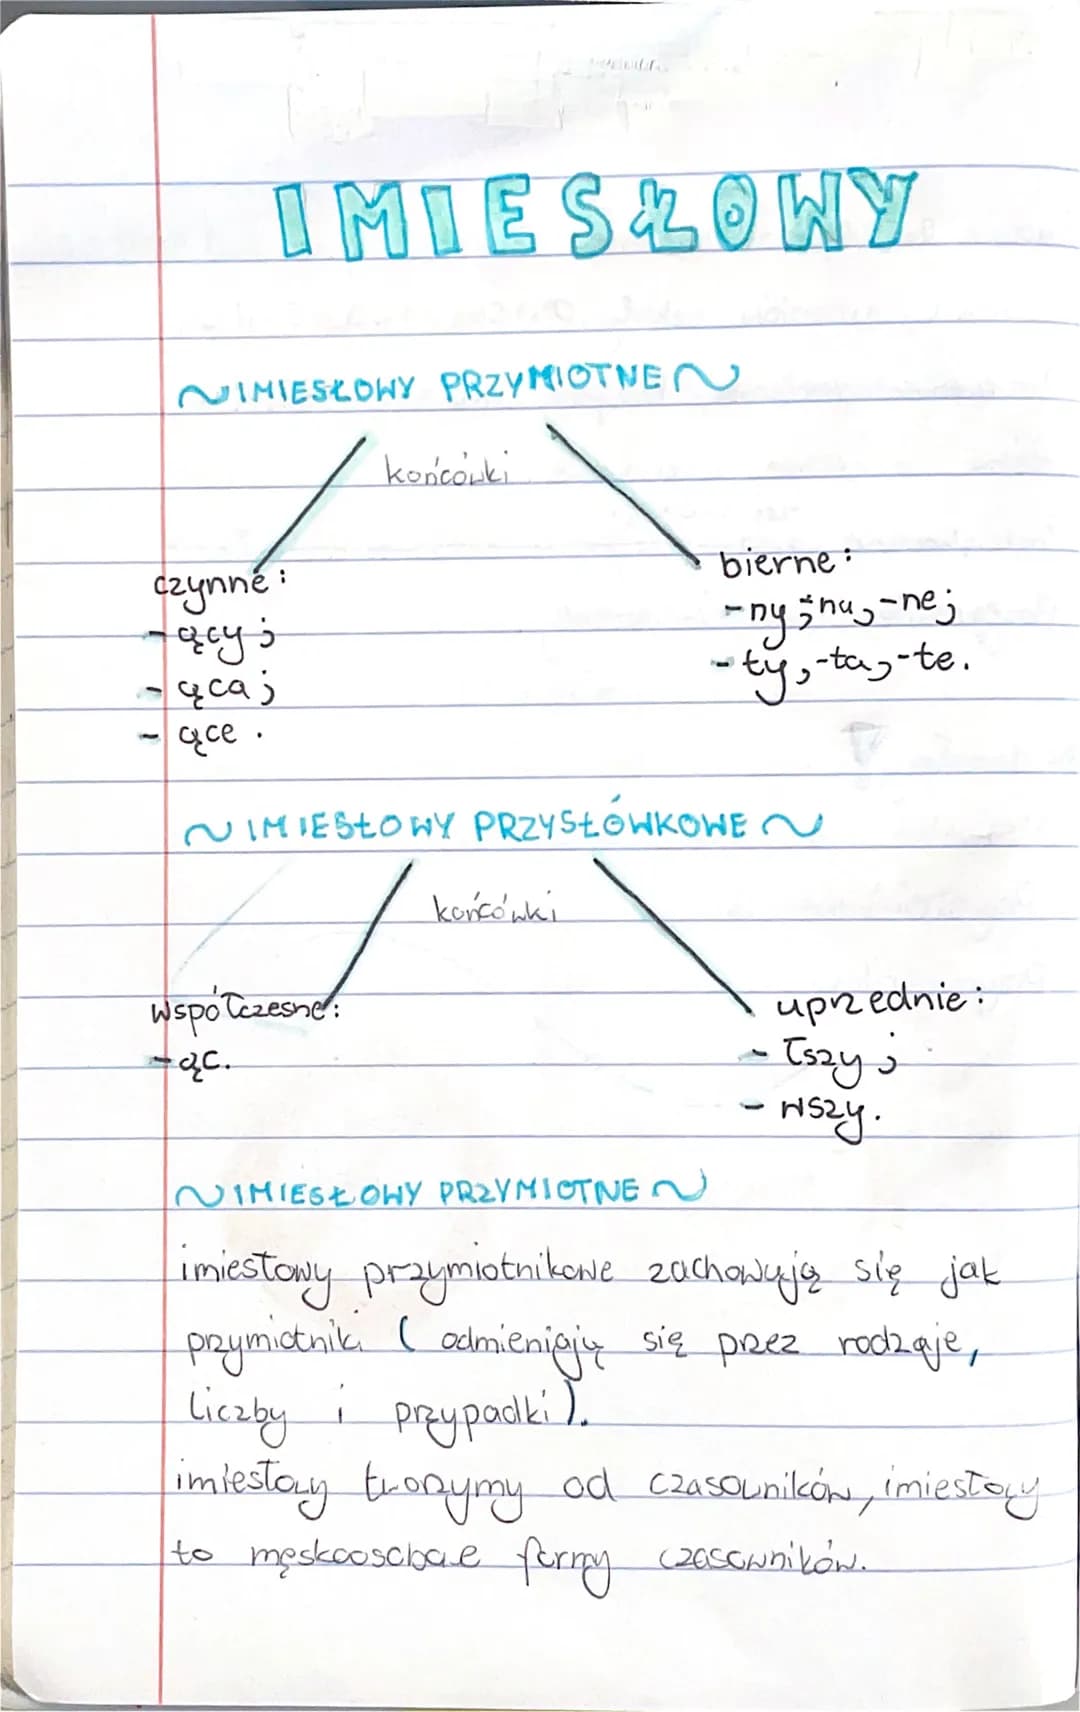 IMIESŁOWY
~IMIESŁOWY PRZYMIOTNE~
końcówki
czynne:
-ący;
- ąca;
- ące.
bierne:
-ny; -na, -ne;
- ty, -ta, -te.
~IMIESŁOWY PRZYSŁÓWKOWE~
końcówki
współczesne:
-ąc.
uprzednie:
- łszy;
- wszy.
~IMIESŁOWY PRZYMIOTNE~
imiesłowy przymiotnikowe zachowują się jak
przymiotniki (odmieniają się przez rodzaje,
liczby i przypadki).
imiesłowy tworzymy od czasowników, imiesłowy
to męskoosobowe formy czasowników.